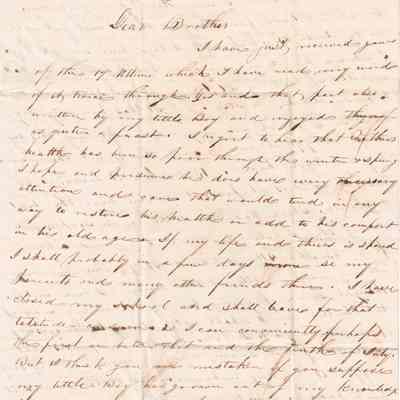 Dear Brother
I have just received yours
of the 17 Ultimo which I have read every word
of it, twice through. Yes and that part also
written by my little Boy and enjoyed
as quite a feast. I regret to hear that
health has been so poor through the winter & spring
I hope and presume he does have every necessary
attention and care that would tend in any
way to restore his health or add to his comfort
in his old age. If my life and theirs is spared
I shall probably in a few days see my
Parents and many other friends there. I have
closed my school and shall leave for that
as I can conveniently perhaps
the first or between that and the tenth of July.
But I think you are mistaken if you suppose
my little Boy has grown out of my knowledge